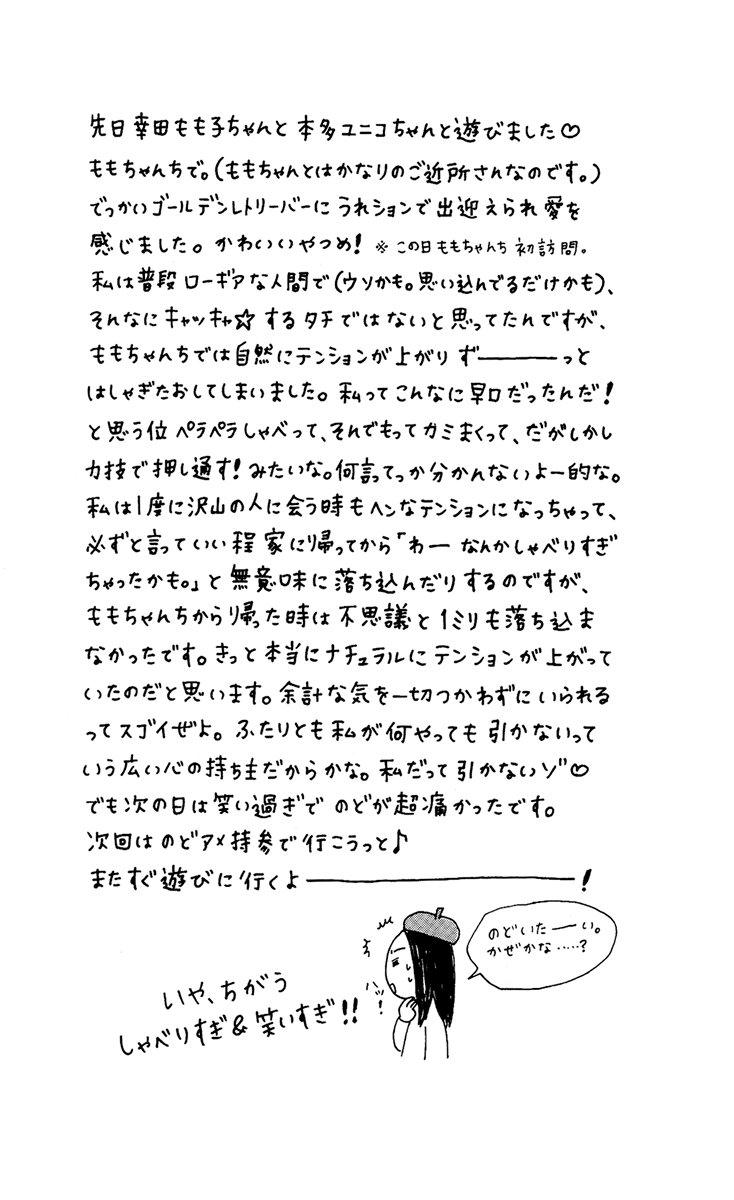 先日幸田もも子ちゃんと本多ユニコちゃんと遊びました♡
ももちゃんちで。(ももちゃんとはかなりのご近所さんなのです。)
でっかいゴールデンレトリーバーにうれションで出迎えられ愛を
感じました。かわいいやつめ! ※この日ももちゃんち初訪問。
私は普段ローギアな人間で(ウソかも。思い込んでるだけかも)、
そんなにキャッキャ☆するタチではないと思ってたんですが、
ももちゃんちでは自然にテンションが上がりず───っと
はしゃぎたおしてしまいました。私ってこんなに早口だったんだ!
と思う位ペラペラしゃべって、それでもってカミまくって、だがしかし
力技で押し通す!みたいな。何言ってっか分かんないよー的な。
私は1度に沢山の人に会う時もヘンなテンションになっちゃって、
必ずと言っていい程家に帰ってから「わー なんかしゃべりすぎ
ちゃったかも。」と無意味に落ち込んだりするのですが、
ももちゃんちから帰った時は不思議と1ミリも落ち込ま
なかったです。きっと本当にナチュラルにテンションが上がって
いたのだと思います。余計な気を一切つかわずにいられる
ってスゴイぜよ。ふたりとも私が何やっても引かないって
いう広い心の持ち主だからかな。私だって引かないゾ♡
でも次の日は笑い過ぎでのどが超痛かったです。
次回はのどアメ持参で行こうっと♪
またすぐ遊びに行くよ──────────!
のどいた──い。
かぜかな……?
ハッ!
いや、ちがう
しゃべりすぎ&笑いすぎ!!